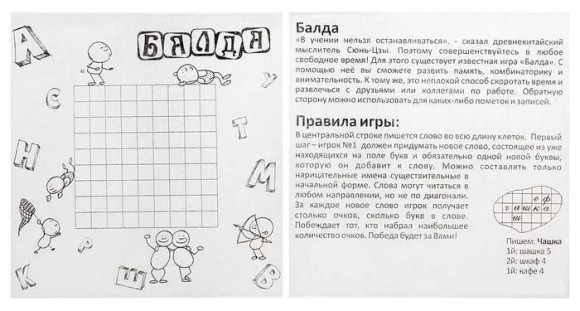 БАЛДА
А
Е
Н
К
Р
Е
У
Т
М
В
Балда
«В учении нельзя останавливаться», - сказал древнекитайский
мыслитель Сюнь-Цзы. Поэтому совершенствуйтесь в любое
свободное время! Для этого существует известная игра «Балда». С
помощью неё вы сможете развить память, комбинаторику и
внимательность. К тому же, это неплохой способ скоротать время и
развлечся с друзьями или коллегами по работе. Обратную
сторону можно использовать для каких-либо пометок и записей.
Правила игры:
В центральной строке пишется слово во всю длину клеток. Первый
шаг – игрок №1 должен придумать новое слово, состоящее из уже
находящихся на поле букв и обязательно одной новой буквы,
которую он добавит к слову. Можно составлять только
нарицательные имена существительные в
начальной форме. Слова могут читаться в
любом направлении, но не по диагонали.
За каждое новое слово игрок получает
столько очков, сколько букв в слове.
Побеждает тот, кто набрал наибольшее
количество очков. Победа будет за Вами!
е ф
ч а ш к а
ш
Пишем: Чашка
1й: шашка 5
2й: шкаф 4
1й: кафе 4